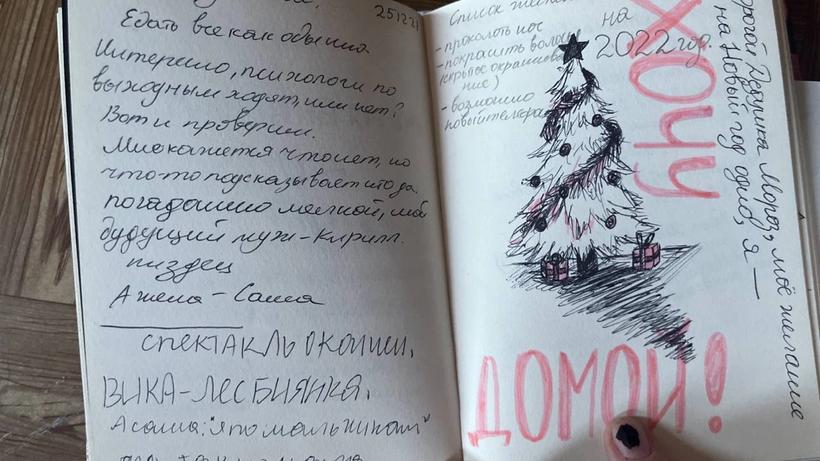 251221
Едать все как обычно
Интересно, психологи по
выходным ходят, или нет?
Вот и проверим.
Мне кажется что нет, но
что-то подсказывает что да.
погадошно мелкой, мой
будущий муж - Кирилл.
пиздец
А жена - Саша
СПЕКТАКЛЬ ОКОНЧЕН,
ВИКА - ЛЕСБИЯНКА.
А саша: "я по мальчикам"
Список
на
2022 год.
- проколоть нос
- покрасить волосы
- возможно
новый
Дедушка Мороз, моё желание
на Новый год одно, я —
ХОЧУ
ДОМОЙ!